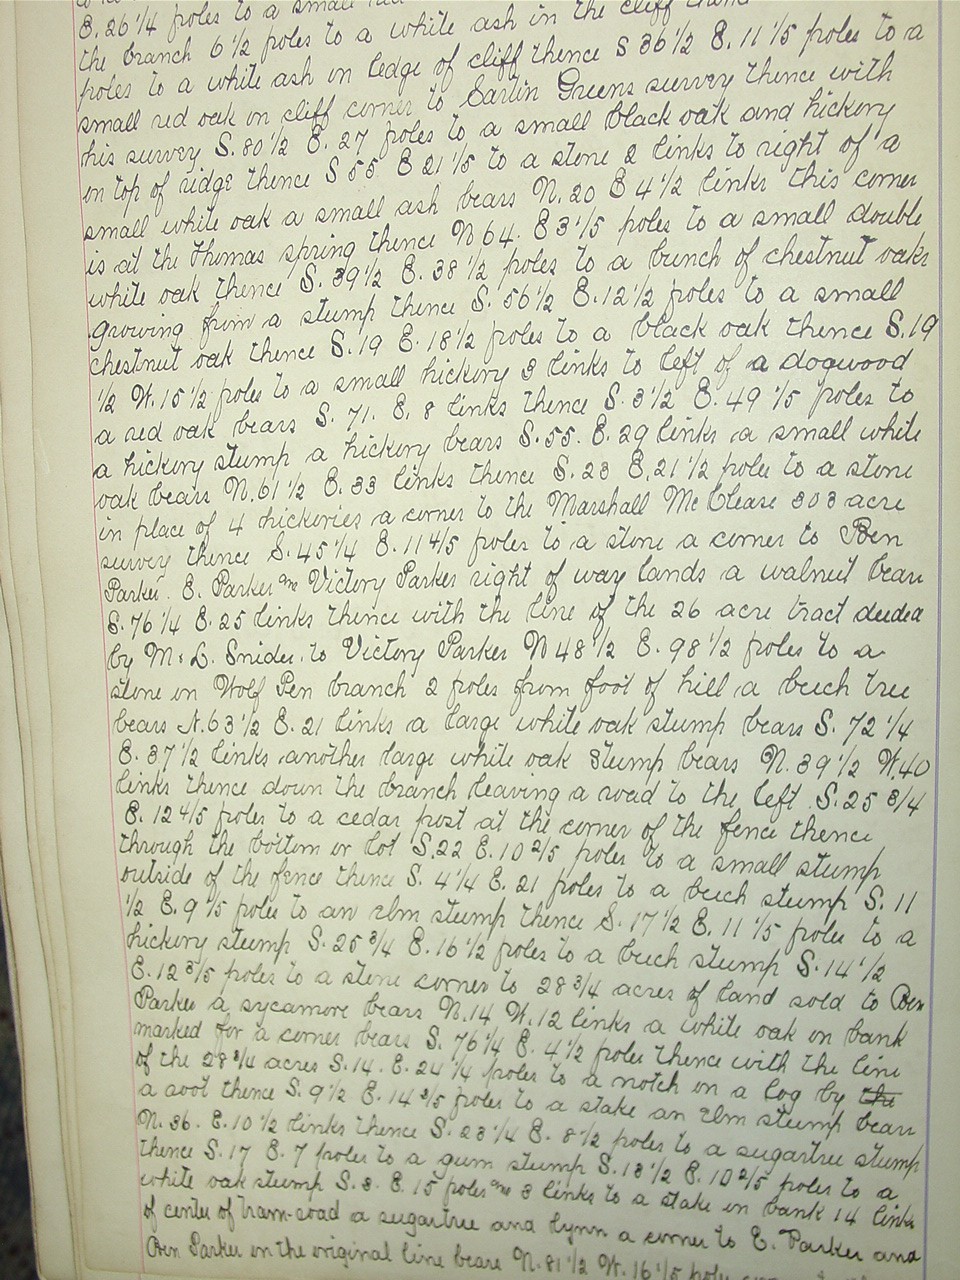 E. 26 1/4 poles to a small red
the branch 6 1/2 poles to a white ash in the cliff thence
poles to a white ash on ledge of cliff thence S 36 1/2 E. 11 1/5 poles to a
small red oak on cliff corner to Sarlin Greens survey thence with
his survey S. 80 1/2 E. 27 poles to a small black oak and hickory
on top of ridge thence S 55 E 21 1/5 to a stone 2 links to right of a
small white oak a small ash bears N. 20 E 4 1/2 links this corner
is at the Thomas spring thence N 64. E 3 1/5 poles to a small double
white oak thence S. 39 1/2 E. 38 1/2 poles to a bunch of chestnut oaks
growing from a stump thence S. 56 1/2 E. 12 1/2 poles to a small
chestnut oak thence S. 19 E. 18 1/2 poles to a black oak thence S. 19
1/2 W. 15 1/2 poles to a small hickory 3 links to left of a dogwood
a red oak bears S. 71. E. 8 links thence S. 3 1/2 E. 49 1/5 poles to
a hickory stump a hickory bears S. 55. E. 29 links a small white
oak bears N. 61 1/2 E. 33 links thence S. 23 E. 21 1/2 poles to a stone
in place of 4 hickories a corner to the Marshall McClease 303 acre
survey thence S. 45 1/4 E. 11 4/5 poles to a stone a corner to Ben
Parker. E. Parker and Victory Parker right of way lands a walnut bears
S. 76 1/4 E. 25 links thence with the line of the 26 acre tract deeded
by M. L. Snider. to Victory Parker N 48 1/2 E. 98 1/2 poles to a
stone on Wolf Pen branch 2 poles from foot of hill a beech tree
bears N. 63 1/2 E. 21 links a large white oak stump bears S. 72 1/4
E. 37 1/2 links another large white oak stump bears N. 39 1/2 W. 40
links thence down the branch leaving a road to the left S. 25 3/4
E. 12 4/5 poles to a cedar post at the corner of the fence thence
through the bottom or lot S. 22 E. 10 2/5 poles to a small stump
outside of the fence thence S. 4 1/4 E. 21 poles to a beech stump S. 11
1/2 E. 9 1/5 poles to an elm stump thence S. 17 1/2 E. 11 1/5 poles to a
hickory stump S. 25 3/4 E. 16 1/2 poles to a beech stump S. 14 1/2
E. 12 3/5 poles to a stone corner to 28 3/4 acres of land sold to Ben
Parker a sycamore bears N. 14 W. 12 links a white oak on bank
marked for a corner bears S. 76 1/4 E. 4 1/2 poles thence with the line
of the 28 3/4 acres S. 14. E. 24 1/4 poles to a notch on a log by the
a root thence S. 9 1/2 E. 14 3/5 poles to a stake an elm stump bears
N. 36. E. 10 1/2 links thence S. 23 1/4 E. 8 1/2 poles to a sugartree stump
thence S. 17 E. 7 poles to a gum stump S. 13 1/2 E. 10 2/5 poles to a
white oak stump S. 3. E. 15 poles and 3 links to a stake in bank 14 links
of center of tram-road a sugartree and lynn a corner to E. Parker and
Ben Parker on the original line bears N. 81 1/2 W. 16 1/5 poles